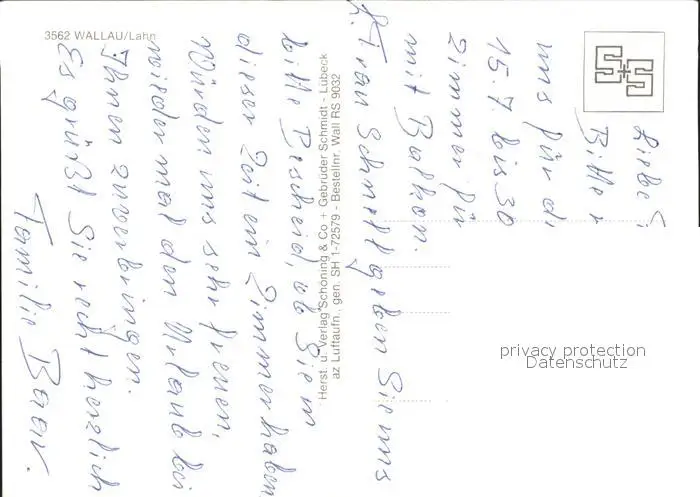 3562 WALLAU/Lahn
Liebe
Bitte
uns für di
15.7. bis 30
Zimmer für
mit Balkon.
Frau Schmelt geben Sie uns
bitte Bescheid, ob Sie in
dieser Zeit ein Zimmer haben.
Würden uns sehr freuen,
wieder mal den Urlaub bei
Ihnen zu verbringen.
Es grüßt Sie recht herzlich
Familie
Herst. u. Verlag Schöning & Co + Gebrüder Schmidt - Lübeck
az Luftaufn., gen. SH 1-72579 - Bestellnr. Wall RS 9032
privacy protection
Datenschutz